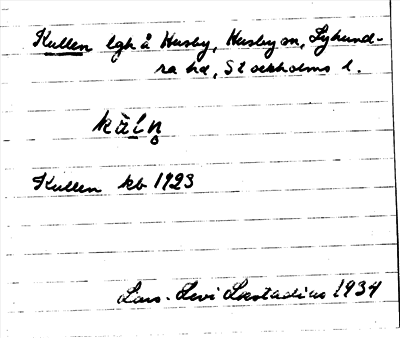 Kullen lgh å Husby, Husby sn, Lyhund-
ra hd, Stockholms l.
kàln̥
Kullen kb 1923
Lars-Levi Læstadius 1934